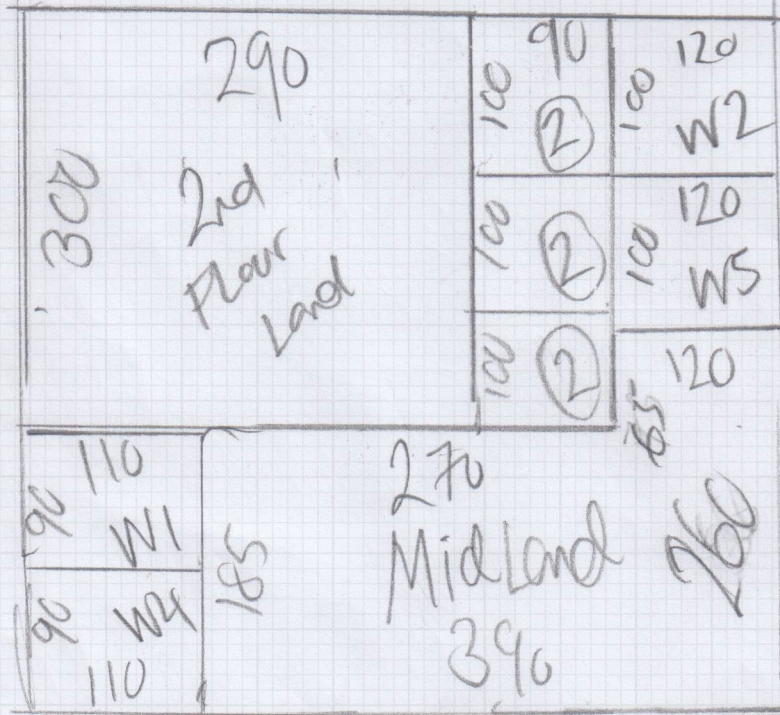 290
300
2nd
Floor
Land
100
90
2
100
2
100
2
100
120
W2
100
120
W5
120
65
260
110
90
W1
90
W4
110
185
270
MidLand
390